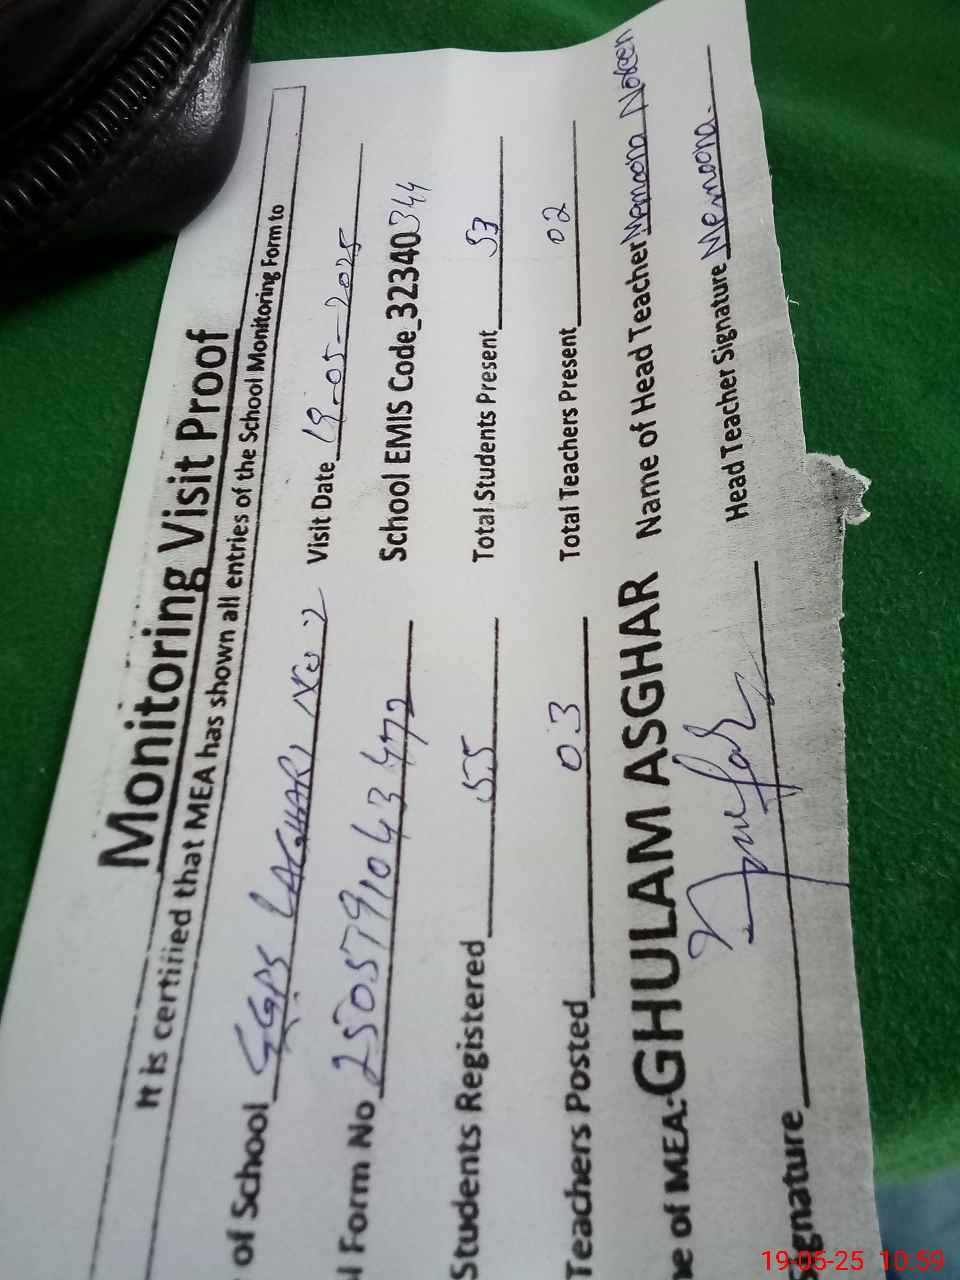 Monitoring Visit Proof
It is certified that MEA has shown all entries of the School Monitoring Form to
of School GGPS LAGHARI No 2 Visit Date 19-05-2025
Form No 2505791043472 School EMIS Code_32340344
Students Registered 55 Total Students Present 53
Teachers Posted 03 Total Teachers Present 02
ne of MEA:-GHULAM ASGHAR Name of Head Teacher Memoona Noreen
gnature Head Teacher Signature Memoona.
19-05-25 10:59